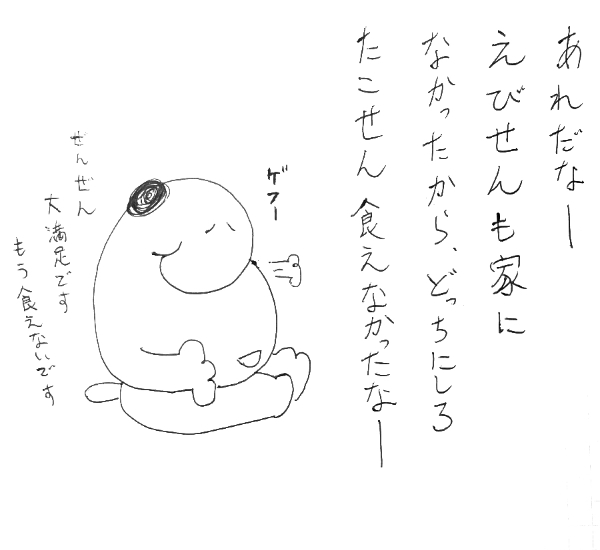 あれだなー
えびせんも家に
なかったから、どっちにしろ
たこせん食えなかったなー
ゲフー
ぜんぜん
大満足です
もう食えないです